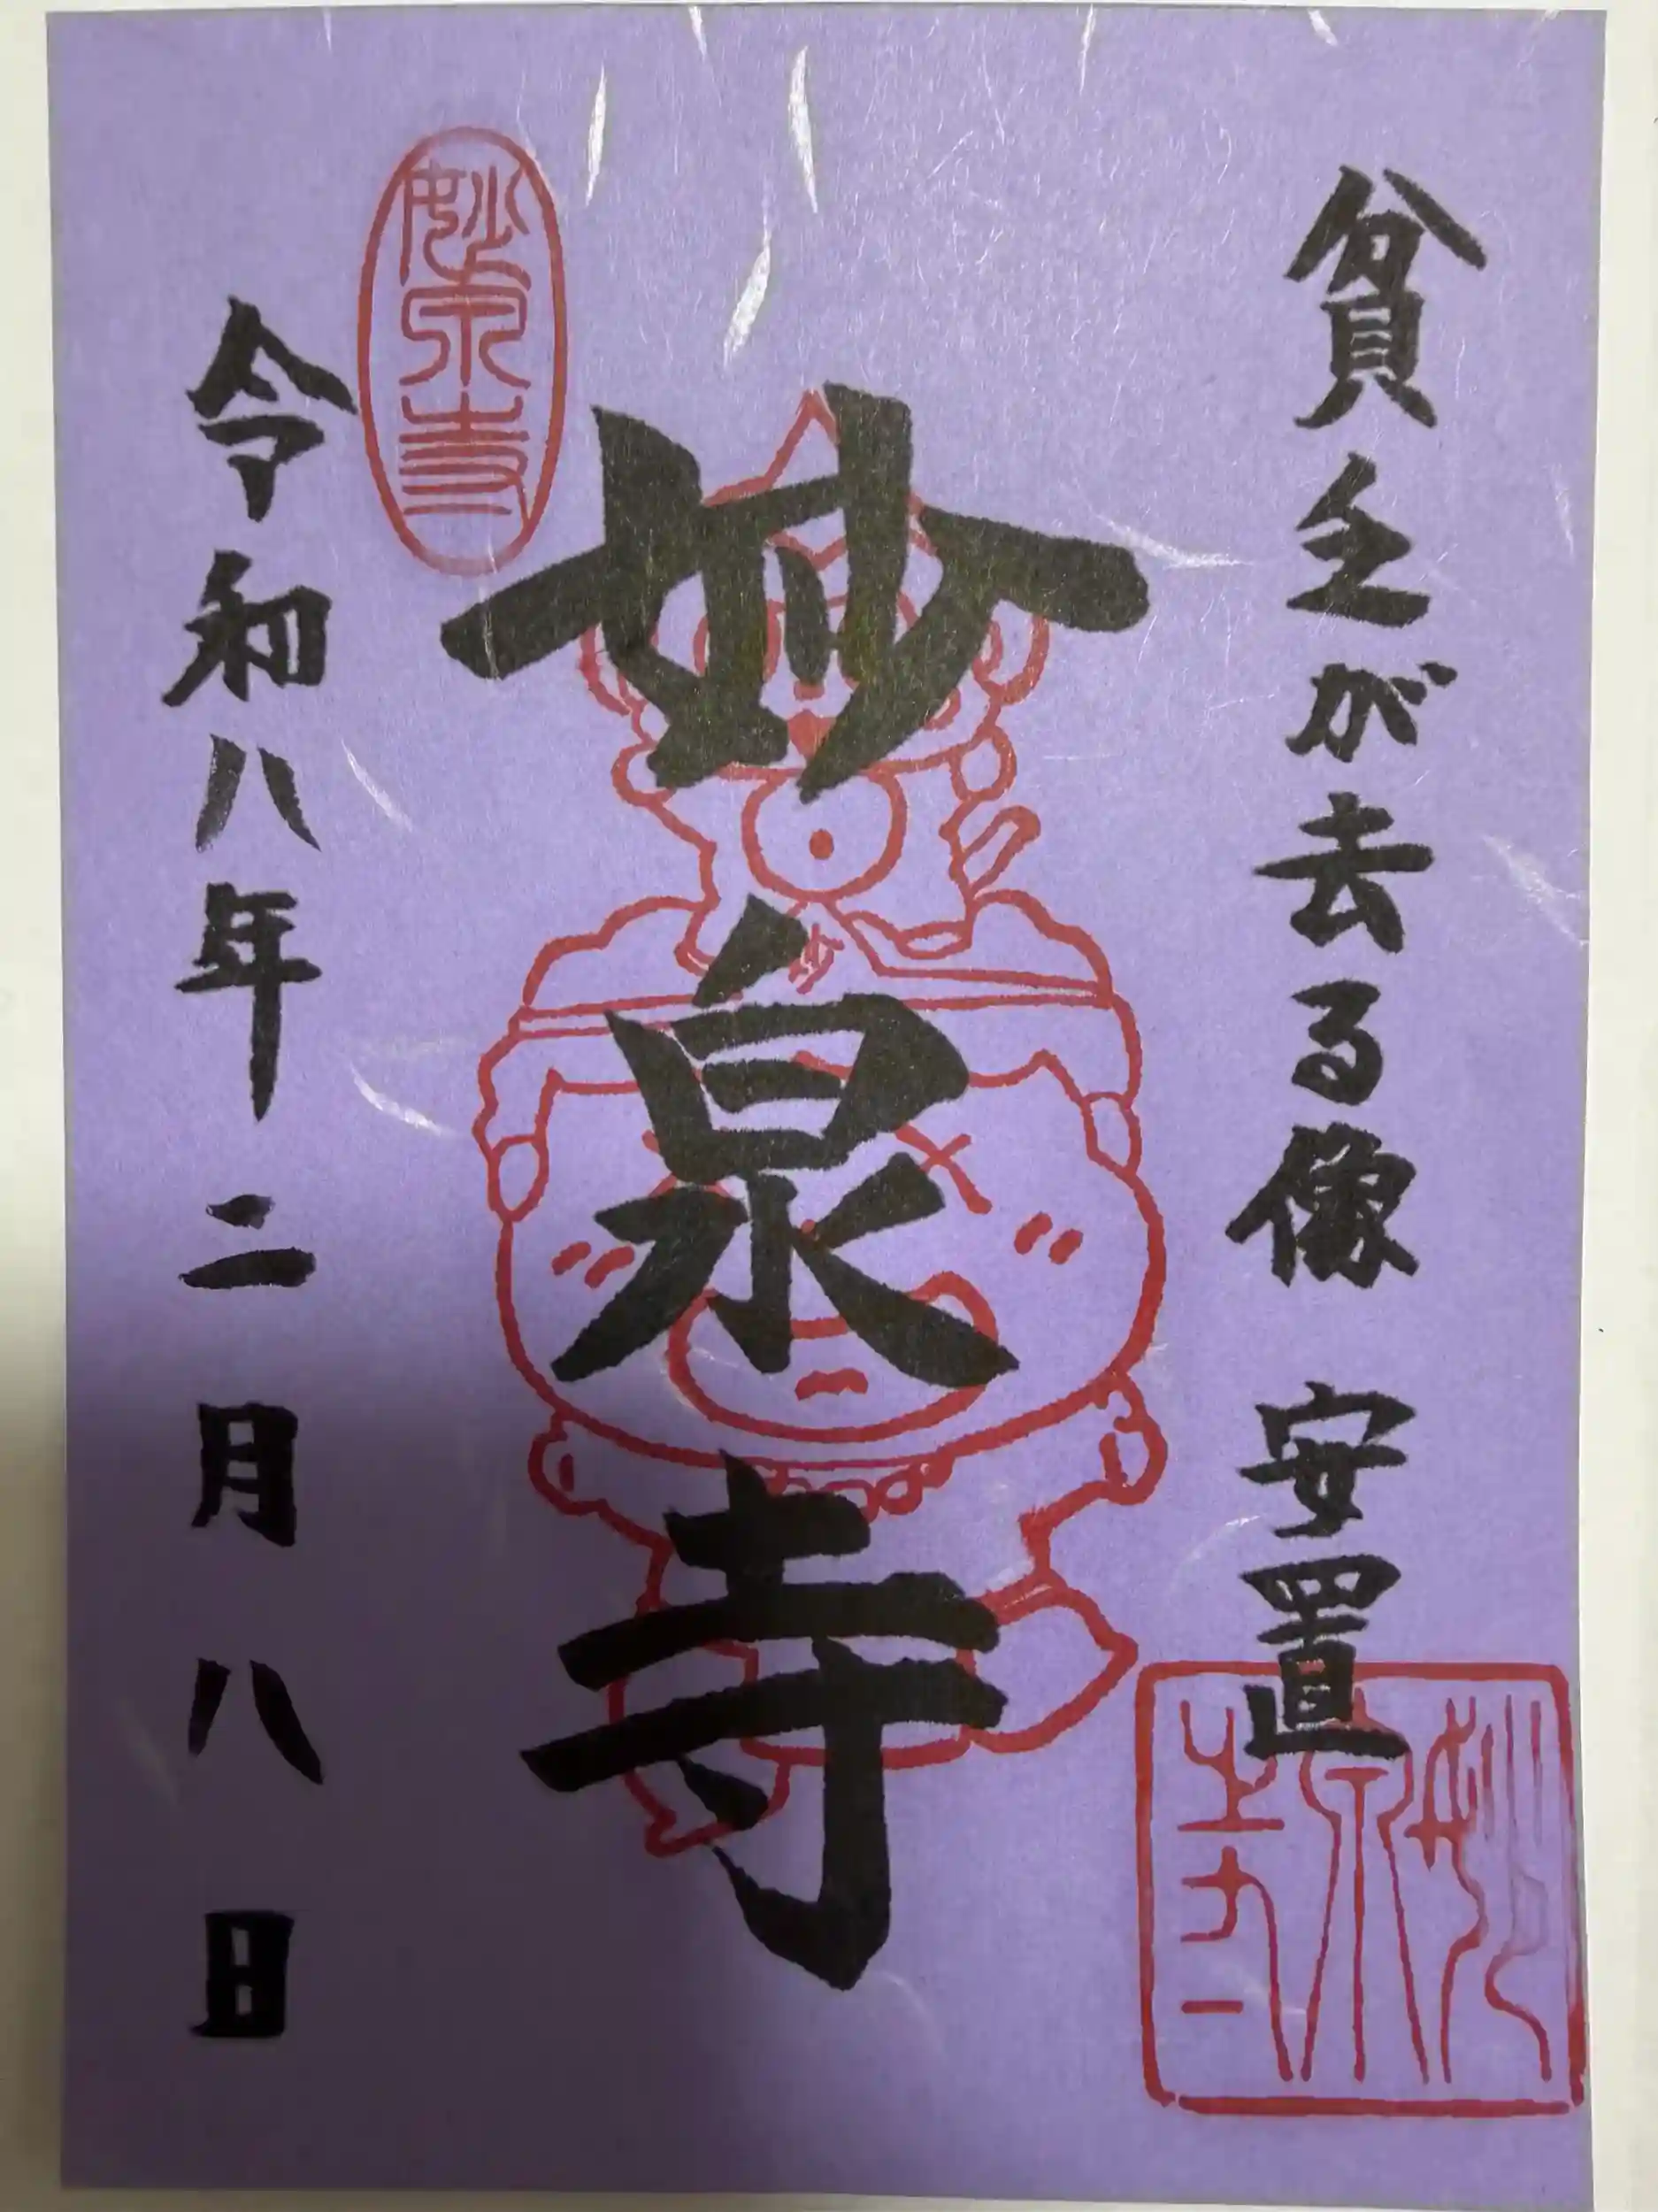 貧乏が去る像 安置
妙泉寺
令和八年二月八日
妙泉寺
妙泉寺
妙